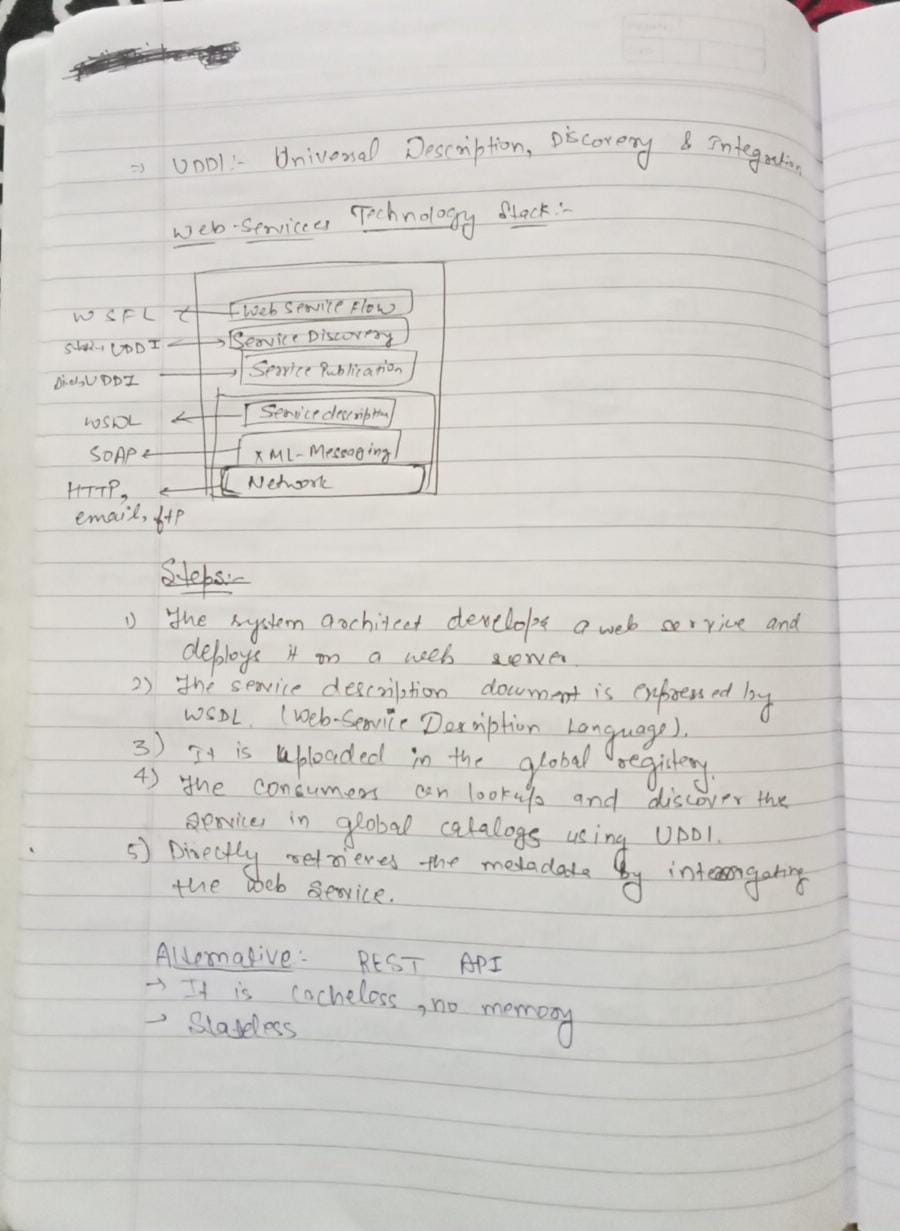 => UDDI:- Universal Description, Discovery & Integration
Web-Services Technology Stack:-
WSFL Web Service Flow
Static UDDI Service Discovery
Direct UDDI Service Publication
WSDL Service description
SOAP XML-Messaging
HTTP, Network
email, ftp
Steps:-
1) The system architect develops a web service and
deploys it on a web server.
2) The service description document is expressed by
WSDL. (Web-Service Description Language).
3) It is uploaded in the global registery.
4) The consumers can lookup and discover the
services in global catalogs using UDDI.
5) Directly retrieves the metadata by interrogating
the web service.
Alternative:- REST API
→ It is cacheless, no memory
→ Stateless